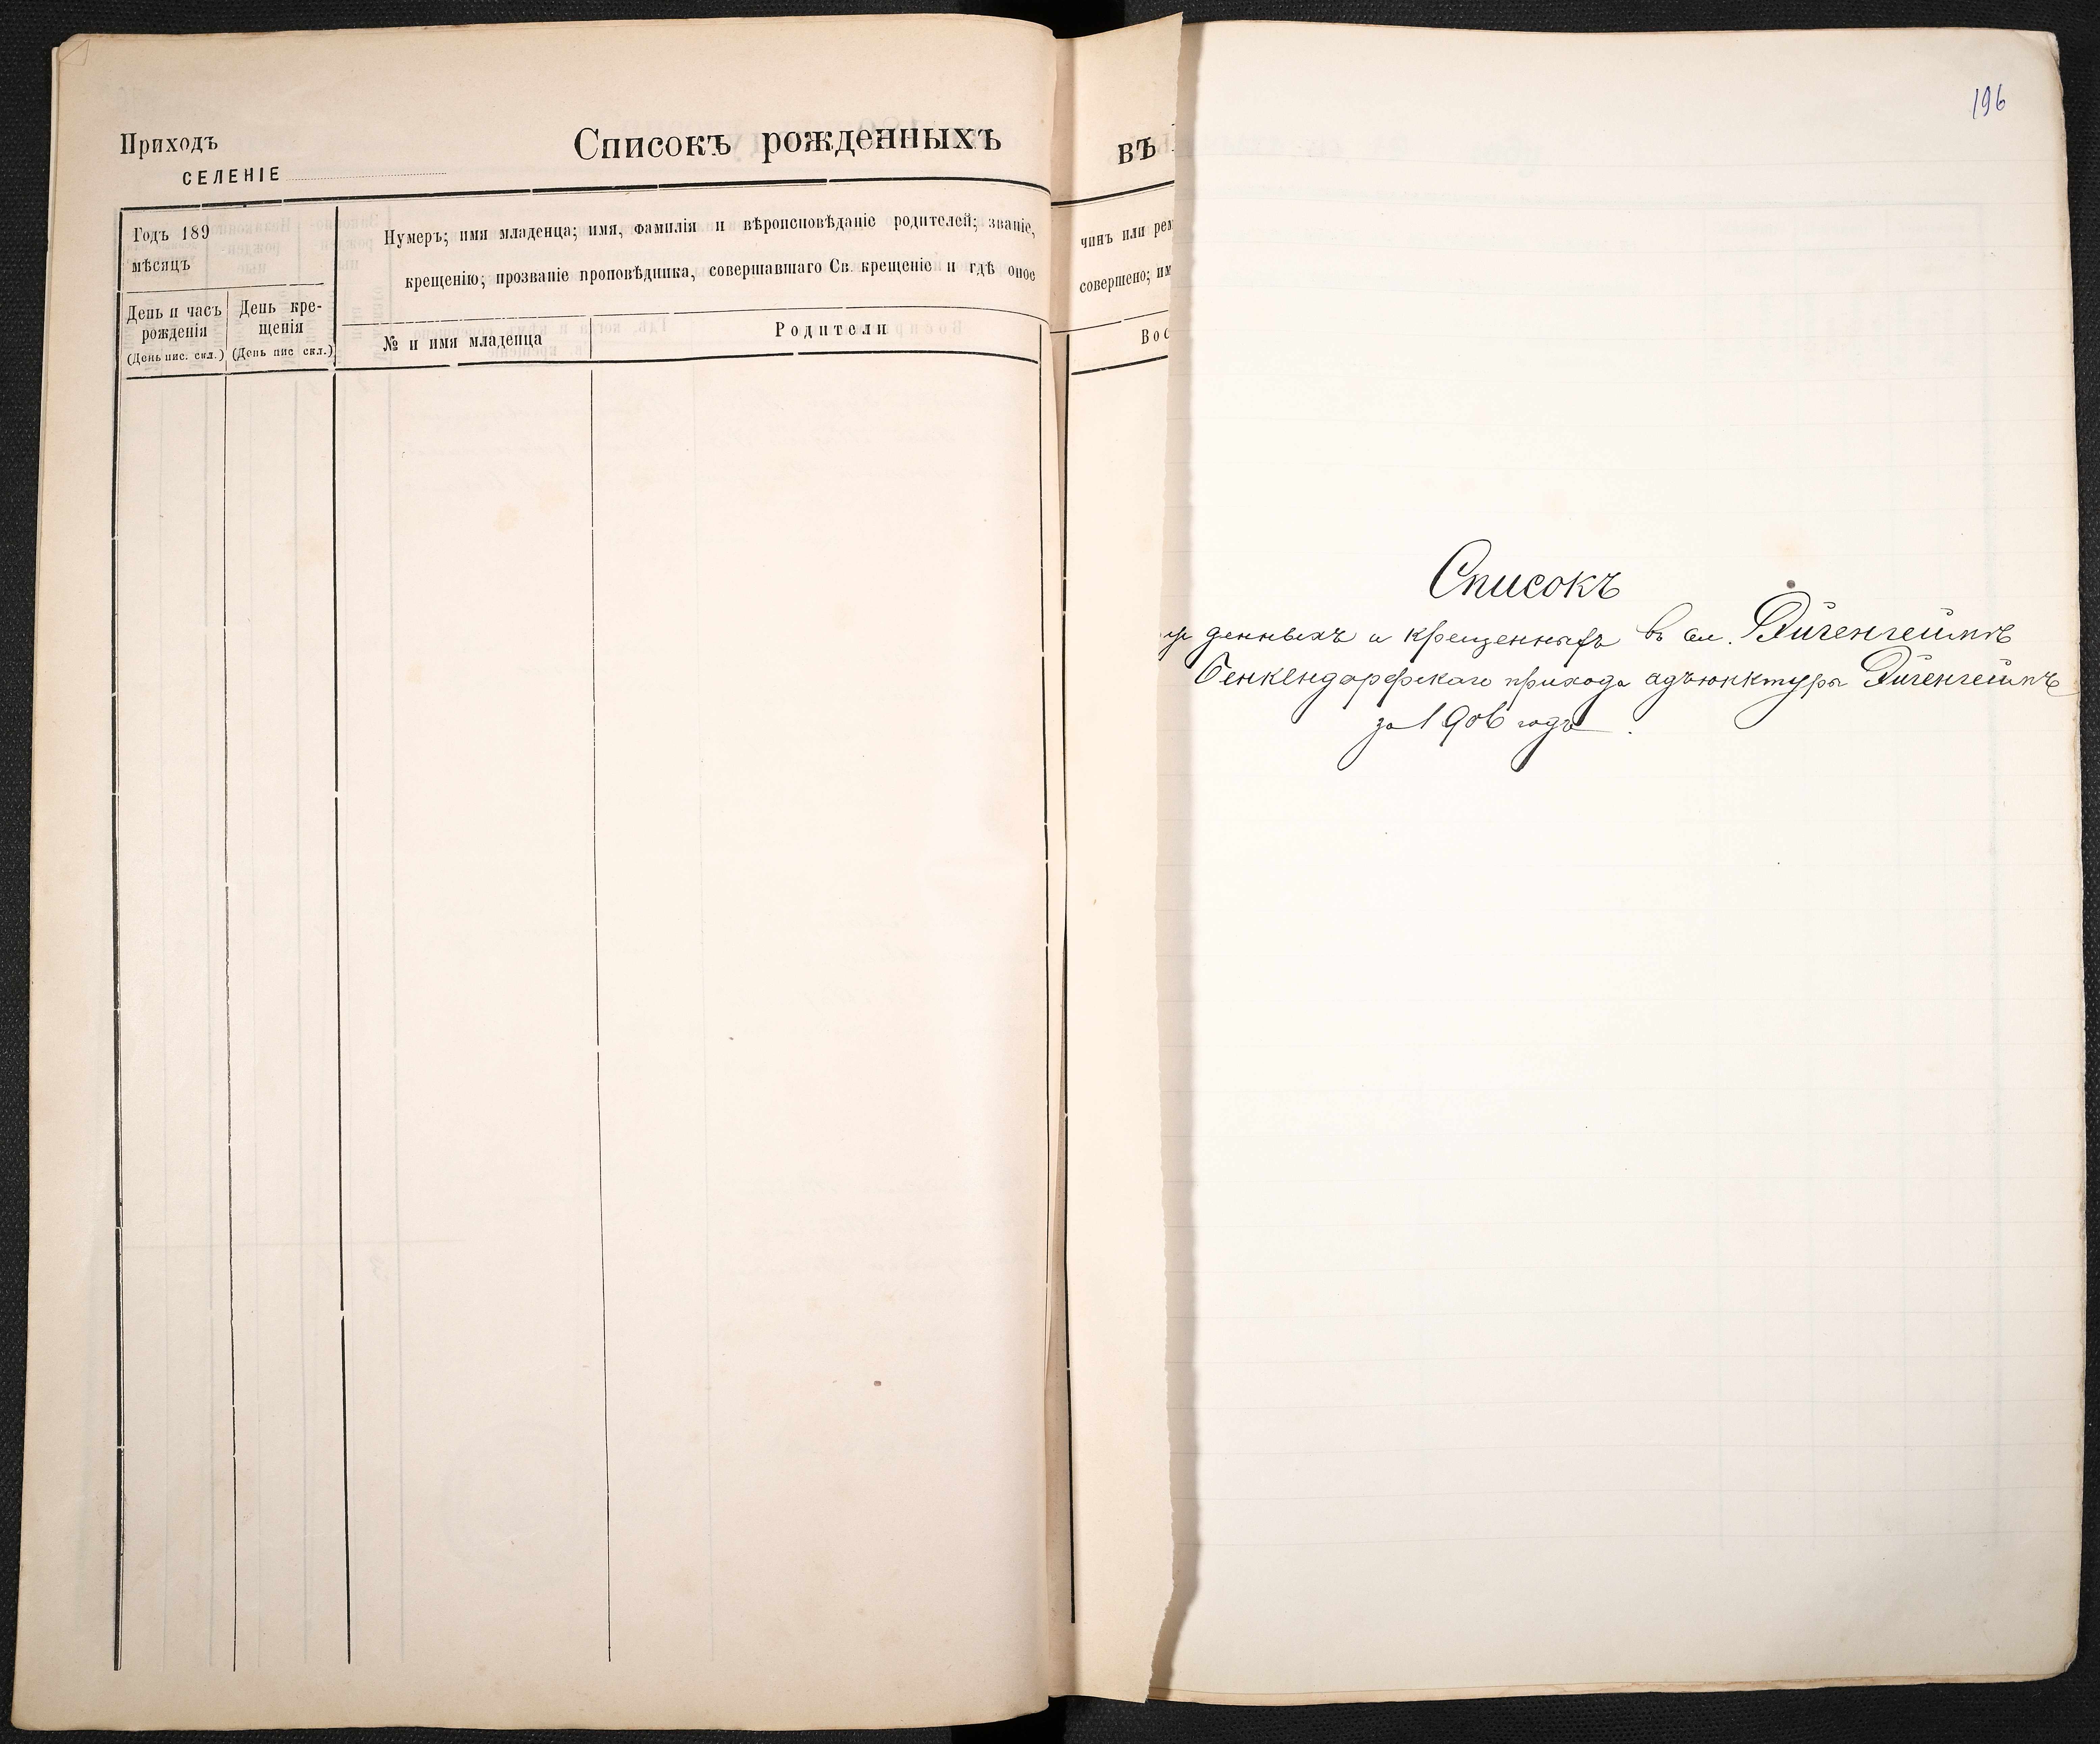 Приходъ
СЕЛЕНІЕ
Списокъ рожденныхъ
въ
Годъ 189
мѣсяцъ
Нумеръ; имя младенца; имя, фамилія и вѣроисповѣданіе родителей; званіе,
крещенію; прозваніе проповѣдника, совершавшаго Св. крещеніе и гдѣ оное
День и часъ
рожденія
(День нис. скл.)
День кре-
щенія
(День нис скл.)
№ и имя младенца
Родители
чинъ или рем
совершено; им
Вос
196
Списокъ
денныхъ и крещенныхъ въ сел. Эйгенгеймѣ
Бенкендорфскаго прихода адъюнктуры Эйгенгеймъ
за 1906 годъ.